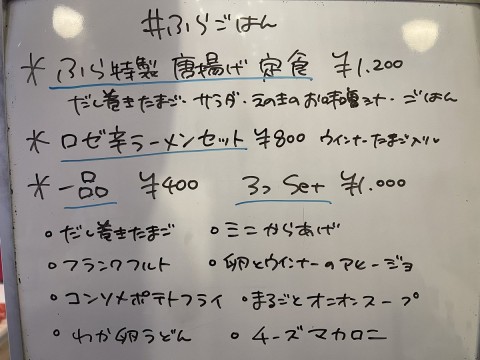 #ふらごはん
* ふら特製 唐揚げ定食 ¥1.200
だし巻きたまご・サラダ・えのきのお味噌汁・ごはん
* ロゼ辛ラーメンセット ¥800 ウインナーたまご入り
* 一品 ¥400 3つSet ¥1.000
• だし巻きたまご • ミニからあげ
• フランクフルト • 卵とウインナーのアヒージョ
• コンソメポテトフライ • まるごとオニオンスープ
• わか卵うどん • チーズマカロニ